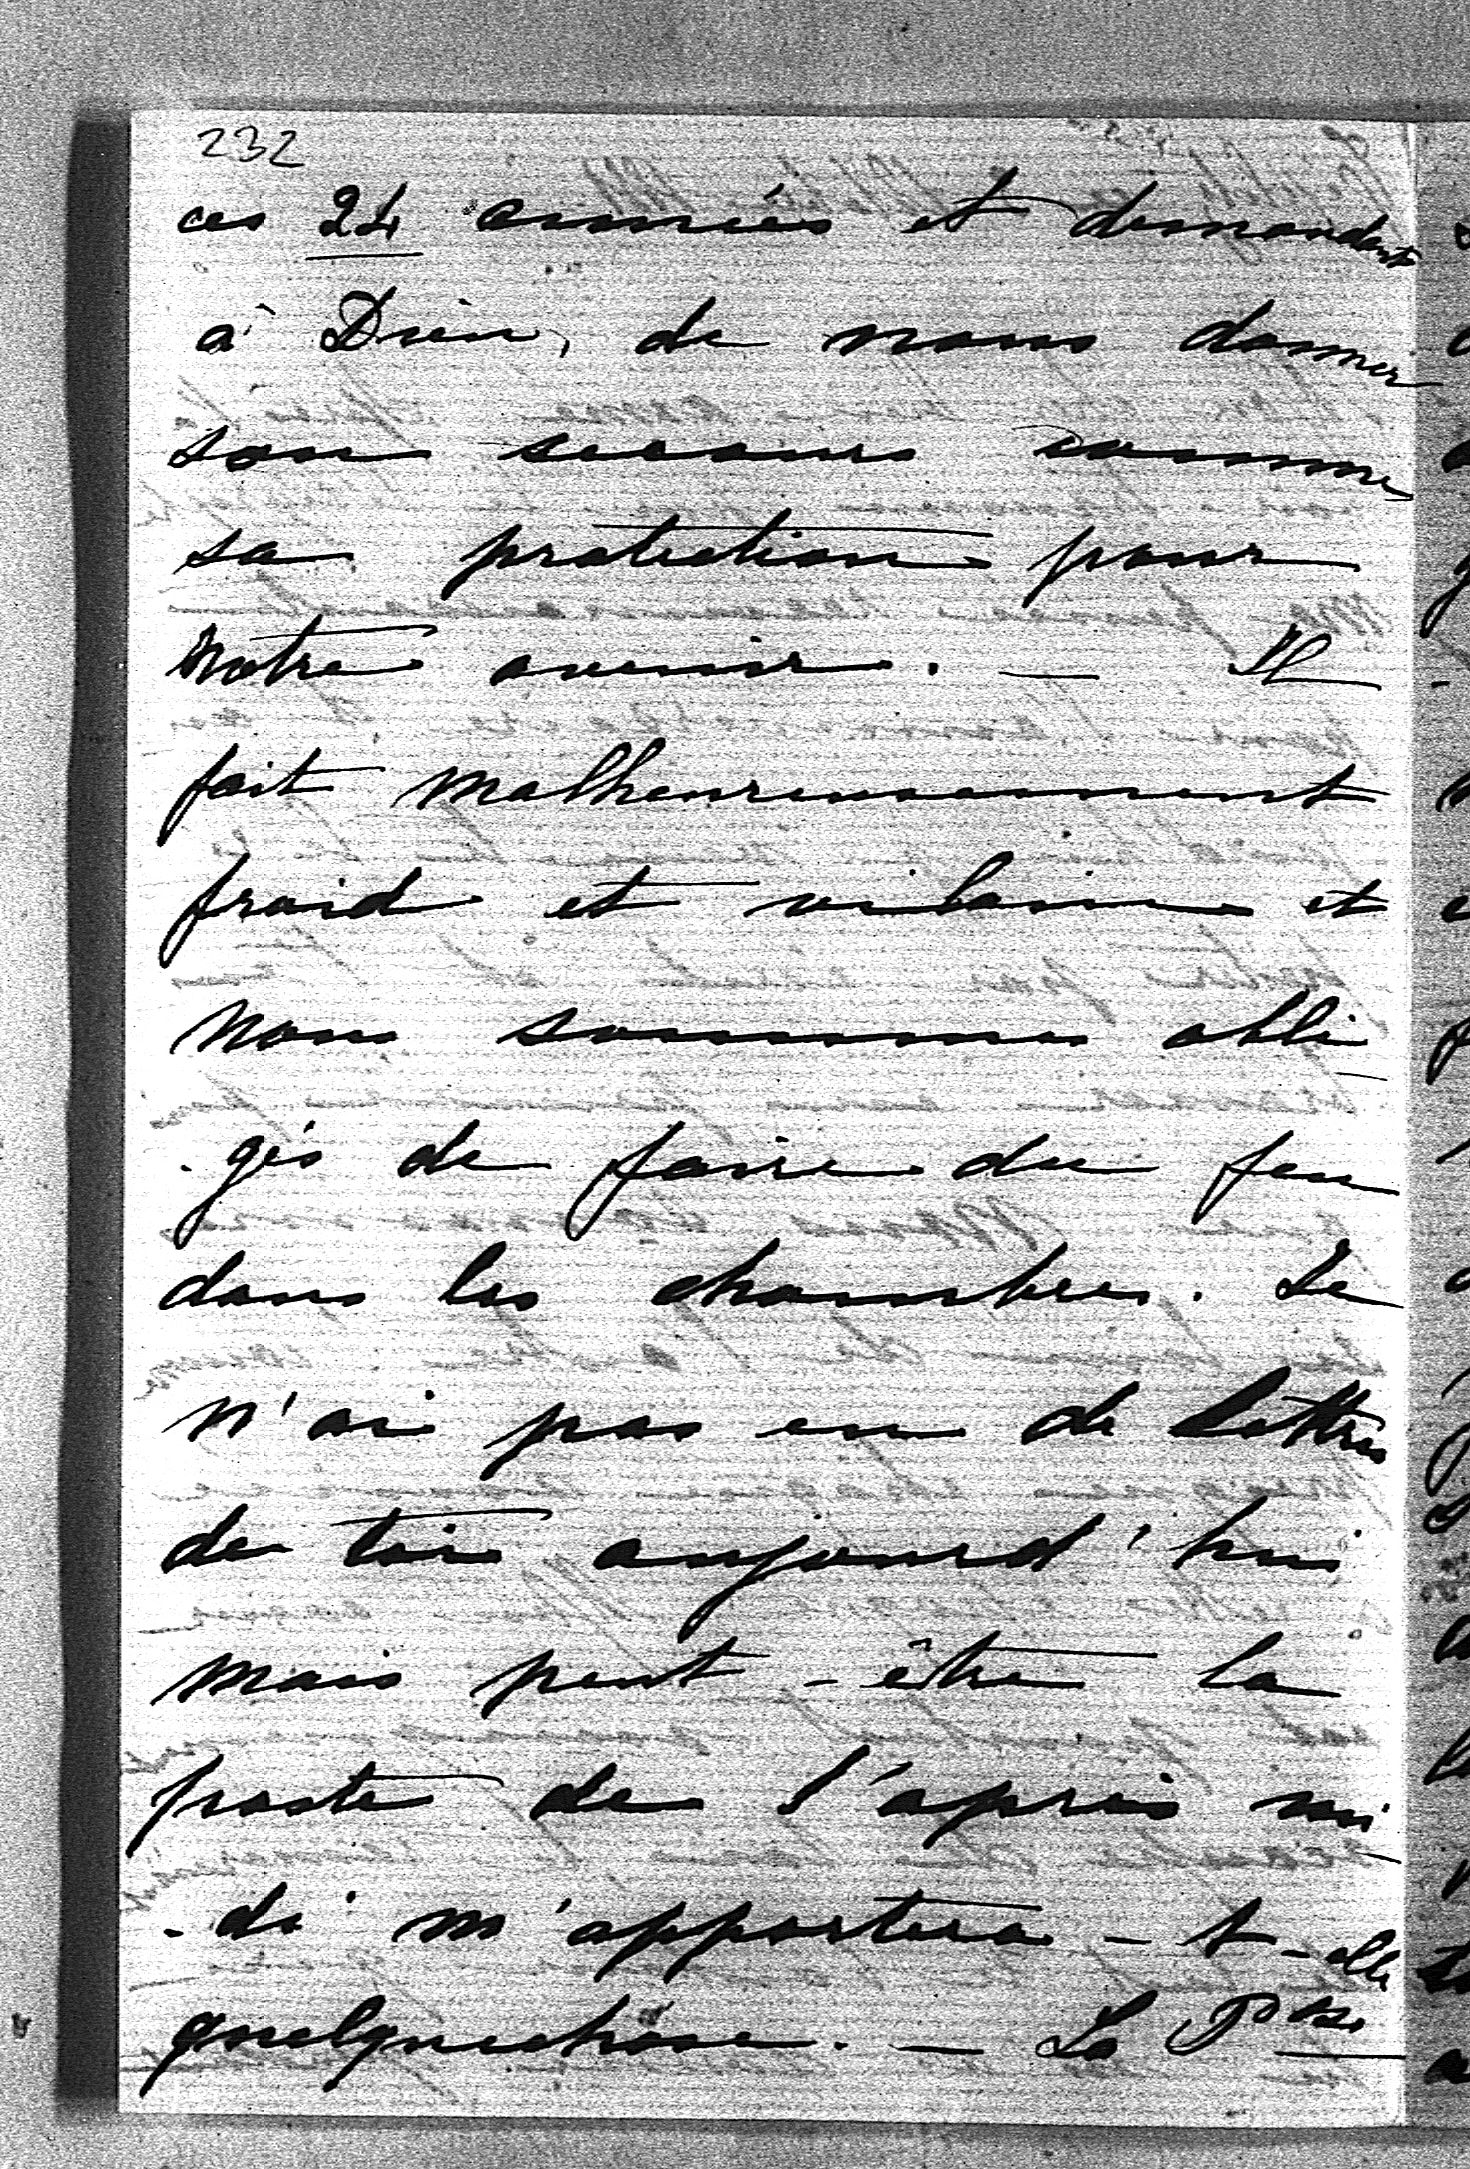 232
ces 24 années et demandant
à Dieu, de nous donner
son secours comme
sa protection pour
notre avenir. — Il
fait malheureusement
froid et vilain et
nous sommes obli
- gés de faire du feu
dans les chambres. Je
n'ai pas eu de lettres
de toi aujourd'hui
mais peut-être la
poste de l'après mi
- di m'apportera-t-elle
quelquechose. — La Psse